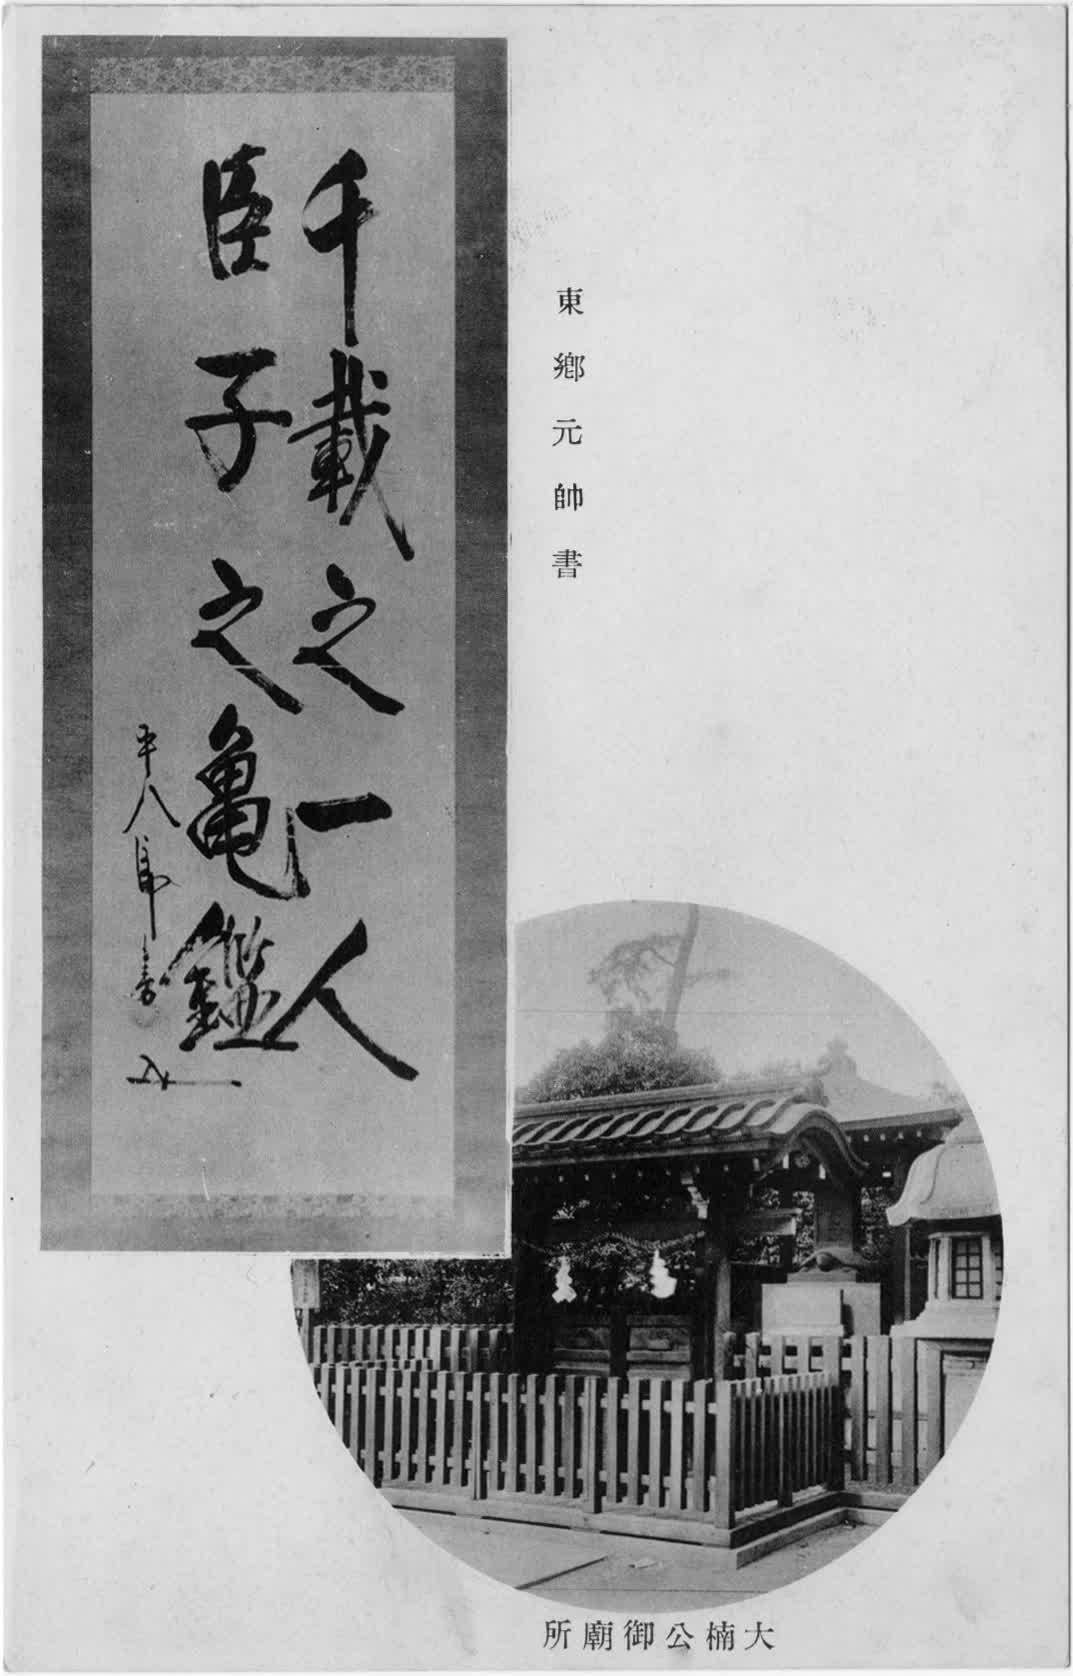 東鄉元帥書
千載之一人
臣子之亀鑑
平八郎書
大楠公御廟所